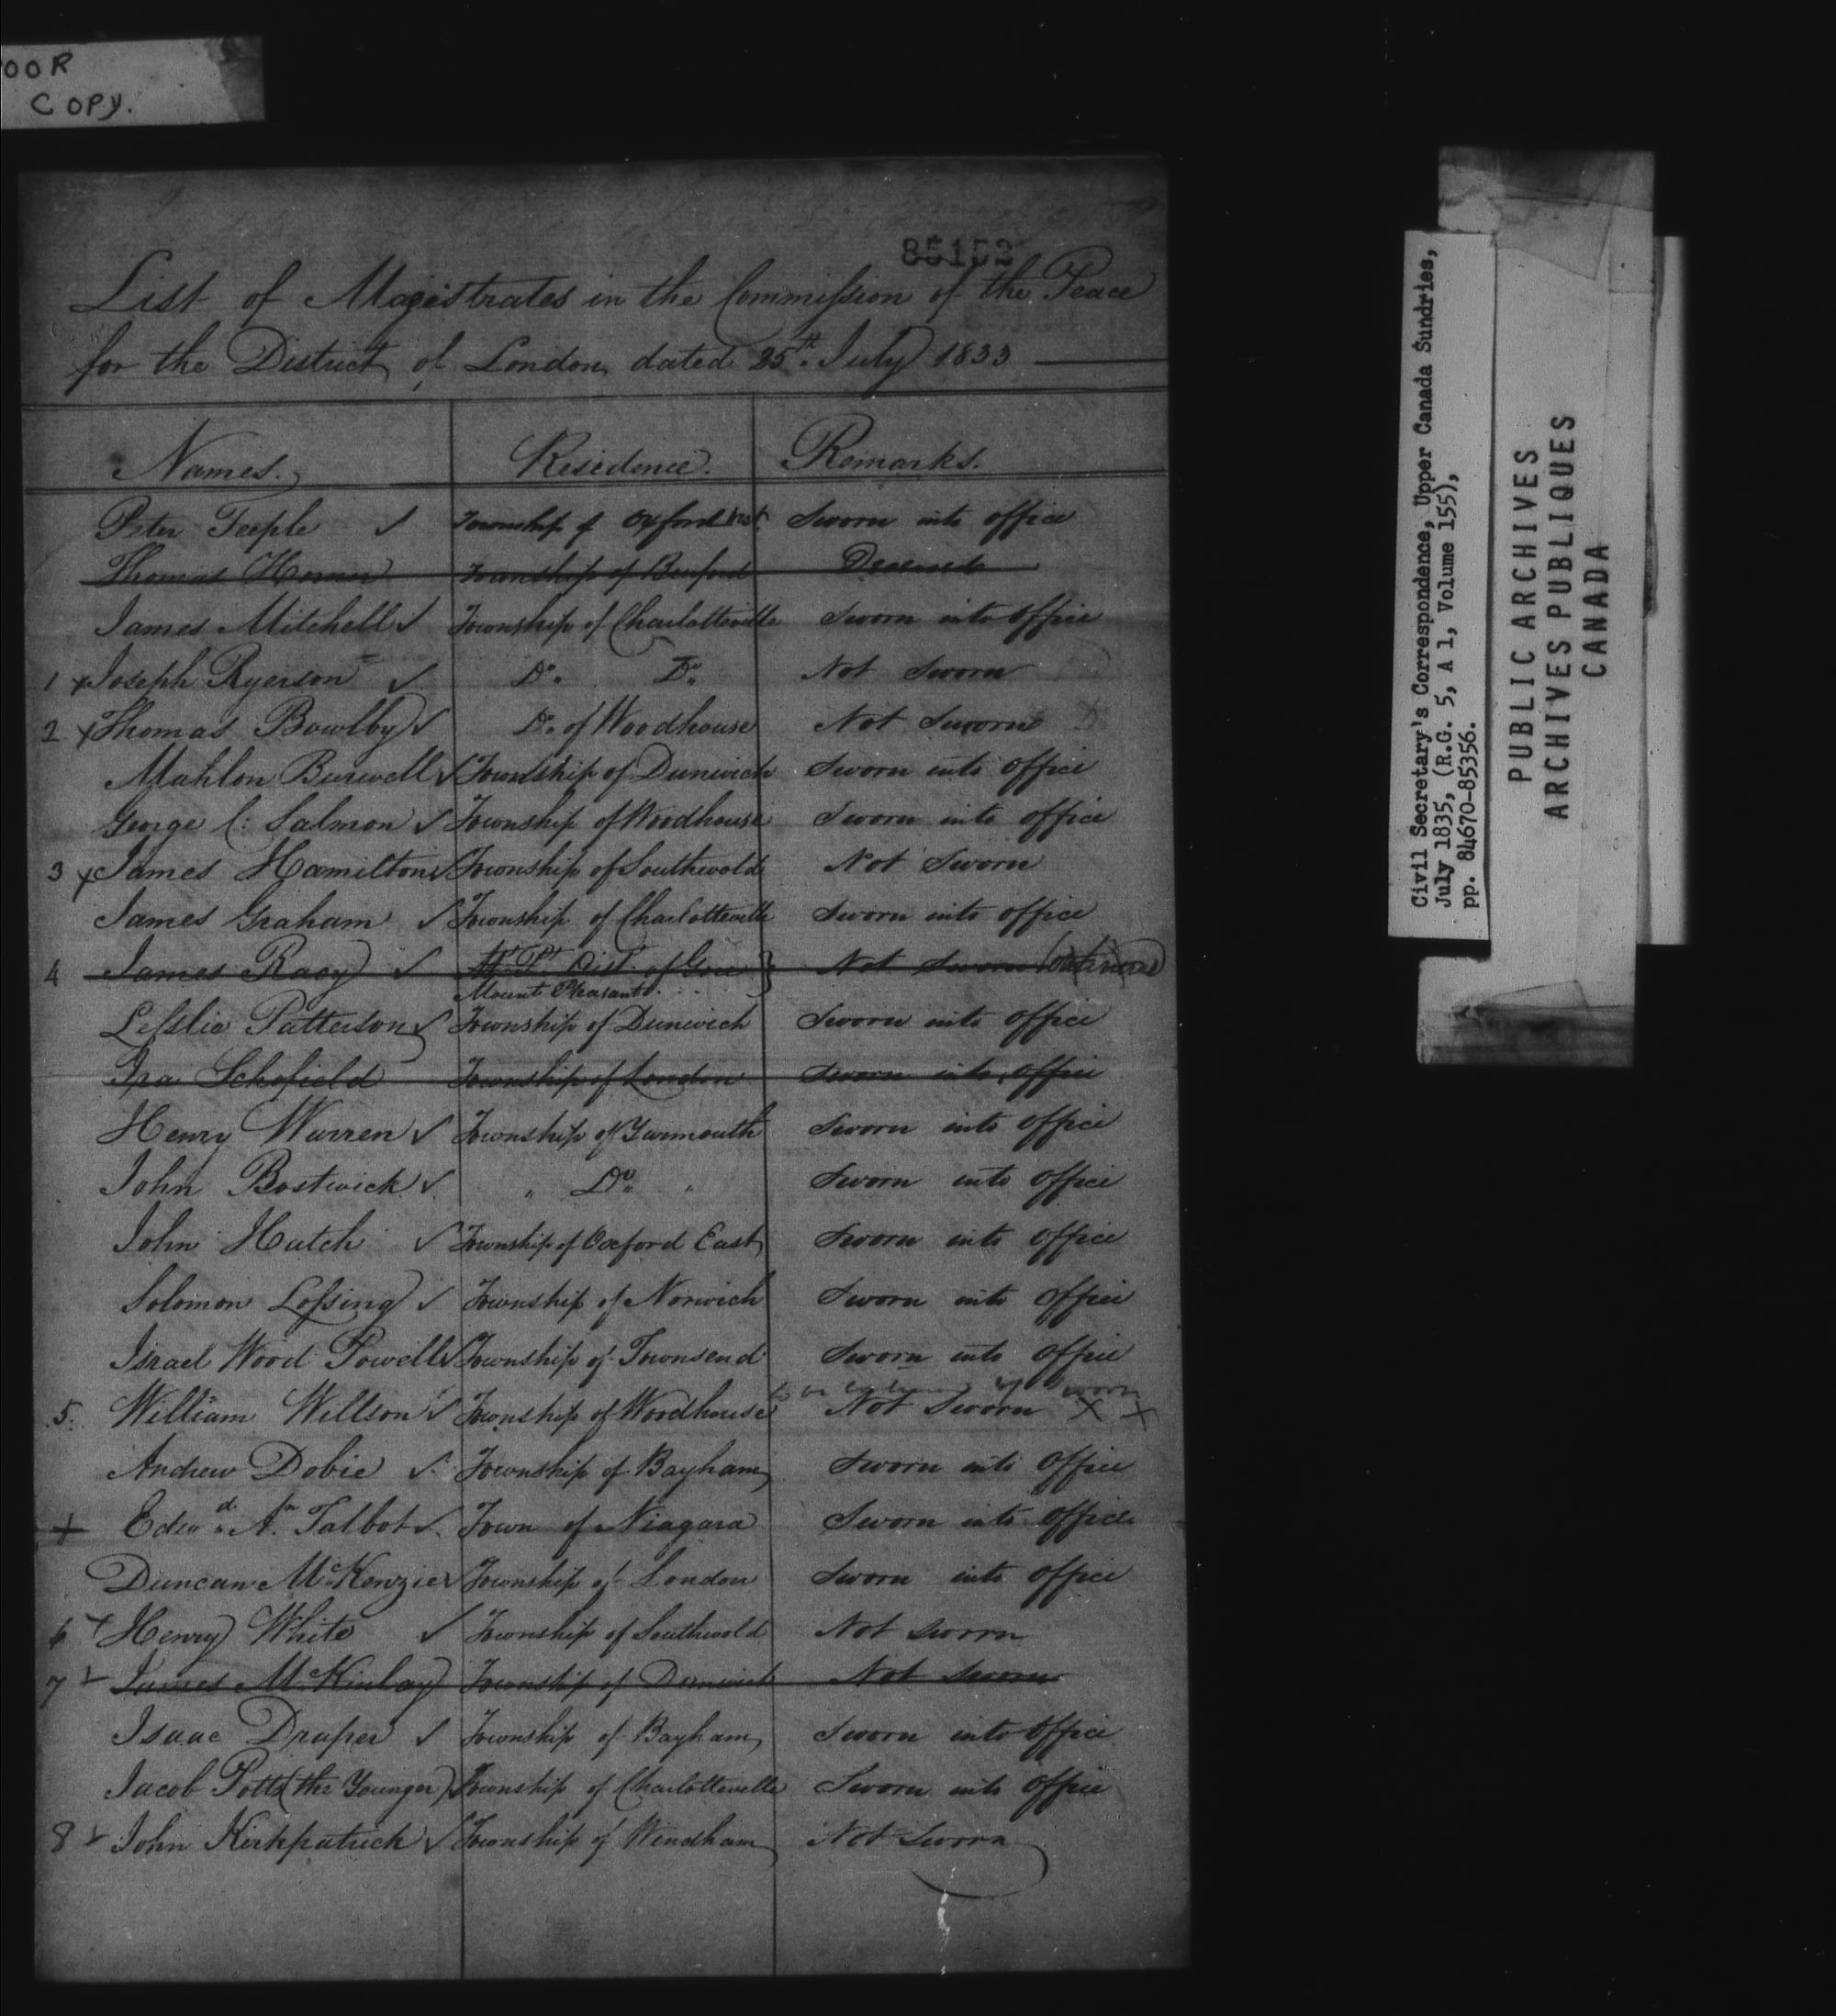 OOR
COPY.
85152
List of Magistrates in the Commission of the Peace
for the District of London dated 25th. July 1833
Names. Residence. Remarks.
Peter Teeple ✓ Township of Oxford West Sworn into office
Thomas Horner Township of Burford Deceased
James Mitchell ✓ Township of Charlotteville Sworn into office
1 x Joseph Ryerson ✓ Do. Do. Not Sworn
2 x Thomas Bowlby ✓ Do. of Woodhouse Not Sworn
Mahlon Burwell ✓ Township of Dunwich Sworn into office
George C: Salmon ✓ Township of Woodhouse Sworn into office
3 x James Hamilton ✓ Township of Southwold Not Sworn
James Graham ✓ Township of Charlotteville Sworn into office
4 James Racy ✓ Dist. of Gore } Not Sworn
Mount Pleasant
Leslie Patterson ✓ Township of Dunwich Sworn into office
Ira Schofield Township of London Sworn into office
Henry Warren ✓ Township of Yarmouth Sworn into office
John Bostwick ✓ " Do. " Sworn into office
John Hatch ✓ Township of Oxford East Sworn into office
Solomon Lossing ✓ Township of Norwich Sworn into office
Israel Wood Powell ✓ Township of Townsend Sworn into office
5. William Willson ✓ Township of Woodhouse Not Sworn x x
Andrew Dobie ✓ Township of Bayham Sworn into office
+ Edwd. A. Talbot ✓ Town of Niagara Sworn into office
Duncan McKenzie ✓ Township of London Sworn into office
6 x Henry White ✓ Township of Southwold Not sworn
7 James McKinlay Township of Dunwich Not Sworn
Isaac Draper ✓ Township of Bayham Sworn into office
Jacob Potts (the Younger) Township of Charlotteville Sworn into office
8 John Kirkpatrick ✓ Township of Windham Not Sworn
Civil Secretary's Correspondence, Upper Canada Sundries,
July 1835, (R.G. 5, A 1, Volume 155),
pp. 84670-85356.
PUBLIC ARCHIVES
ARCHIVES PUBLIQUES
CANADA